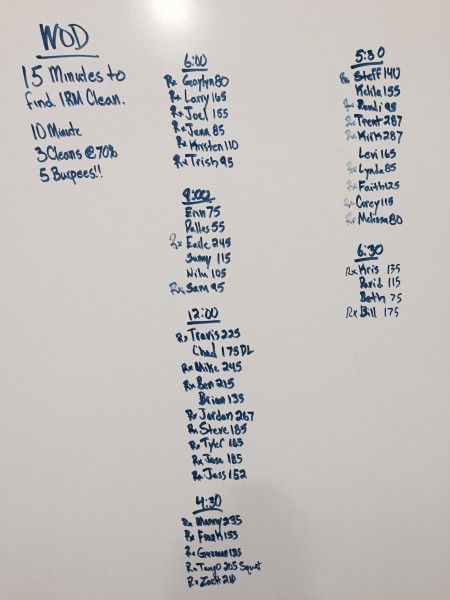 WOD
15 Minutes to
find 1RM Clean.
10 Minute
3 Cleans @ 70%
5 Burpees!!
6:00
Rx Gaylyn 80
Rx Larry 165
Rx Joel 155
Rx Jenn 85
Rx Kristen 110
Rx Trish 95
9:00
Erin 75
Dallas 55
Rx Earle 245
Sunny 115
105
Rx Sam 95
12:00
Rx Travis 225
Chad 175 DL
Rx Mike 245
Rx Ben 215
Brian 135
Rx Jordan 267
Rx Steve 185
Rx Tyler 165
Rx Jose 185
Rx Jess 152
4:30
Rx Manny 235
Rx Frank 155
Rx 135
Rx Tango 205 Squat
Rx Zack 210
5:30
Rx Steff 140
155
Rx Randi 95
Rx Trent 287
Rx Kirk 287
Levi 165
Rx Lynda 85
Rx Faith 125
Rx Corey 115
Rx Melissa 80
6:30
Rx Kris 135
David 115
Beth 75
Rx Bill 175